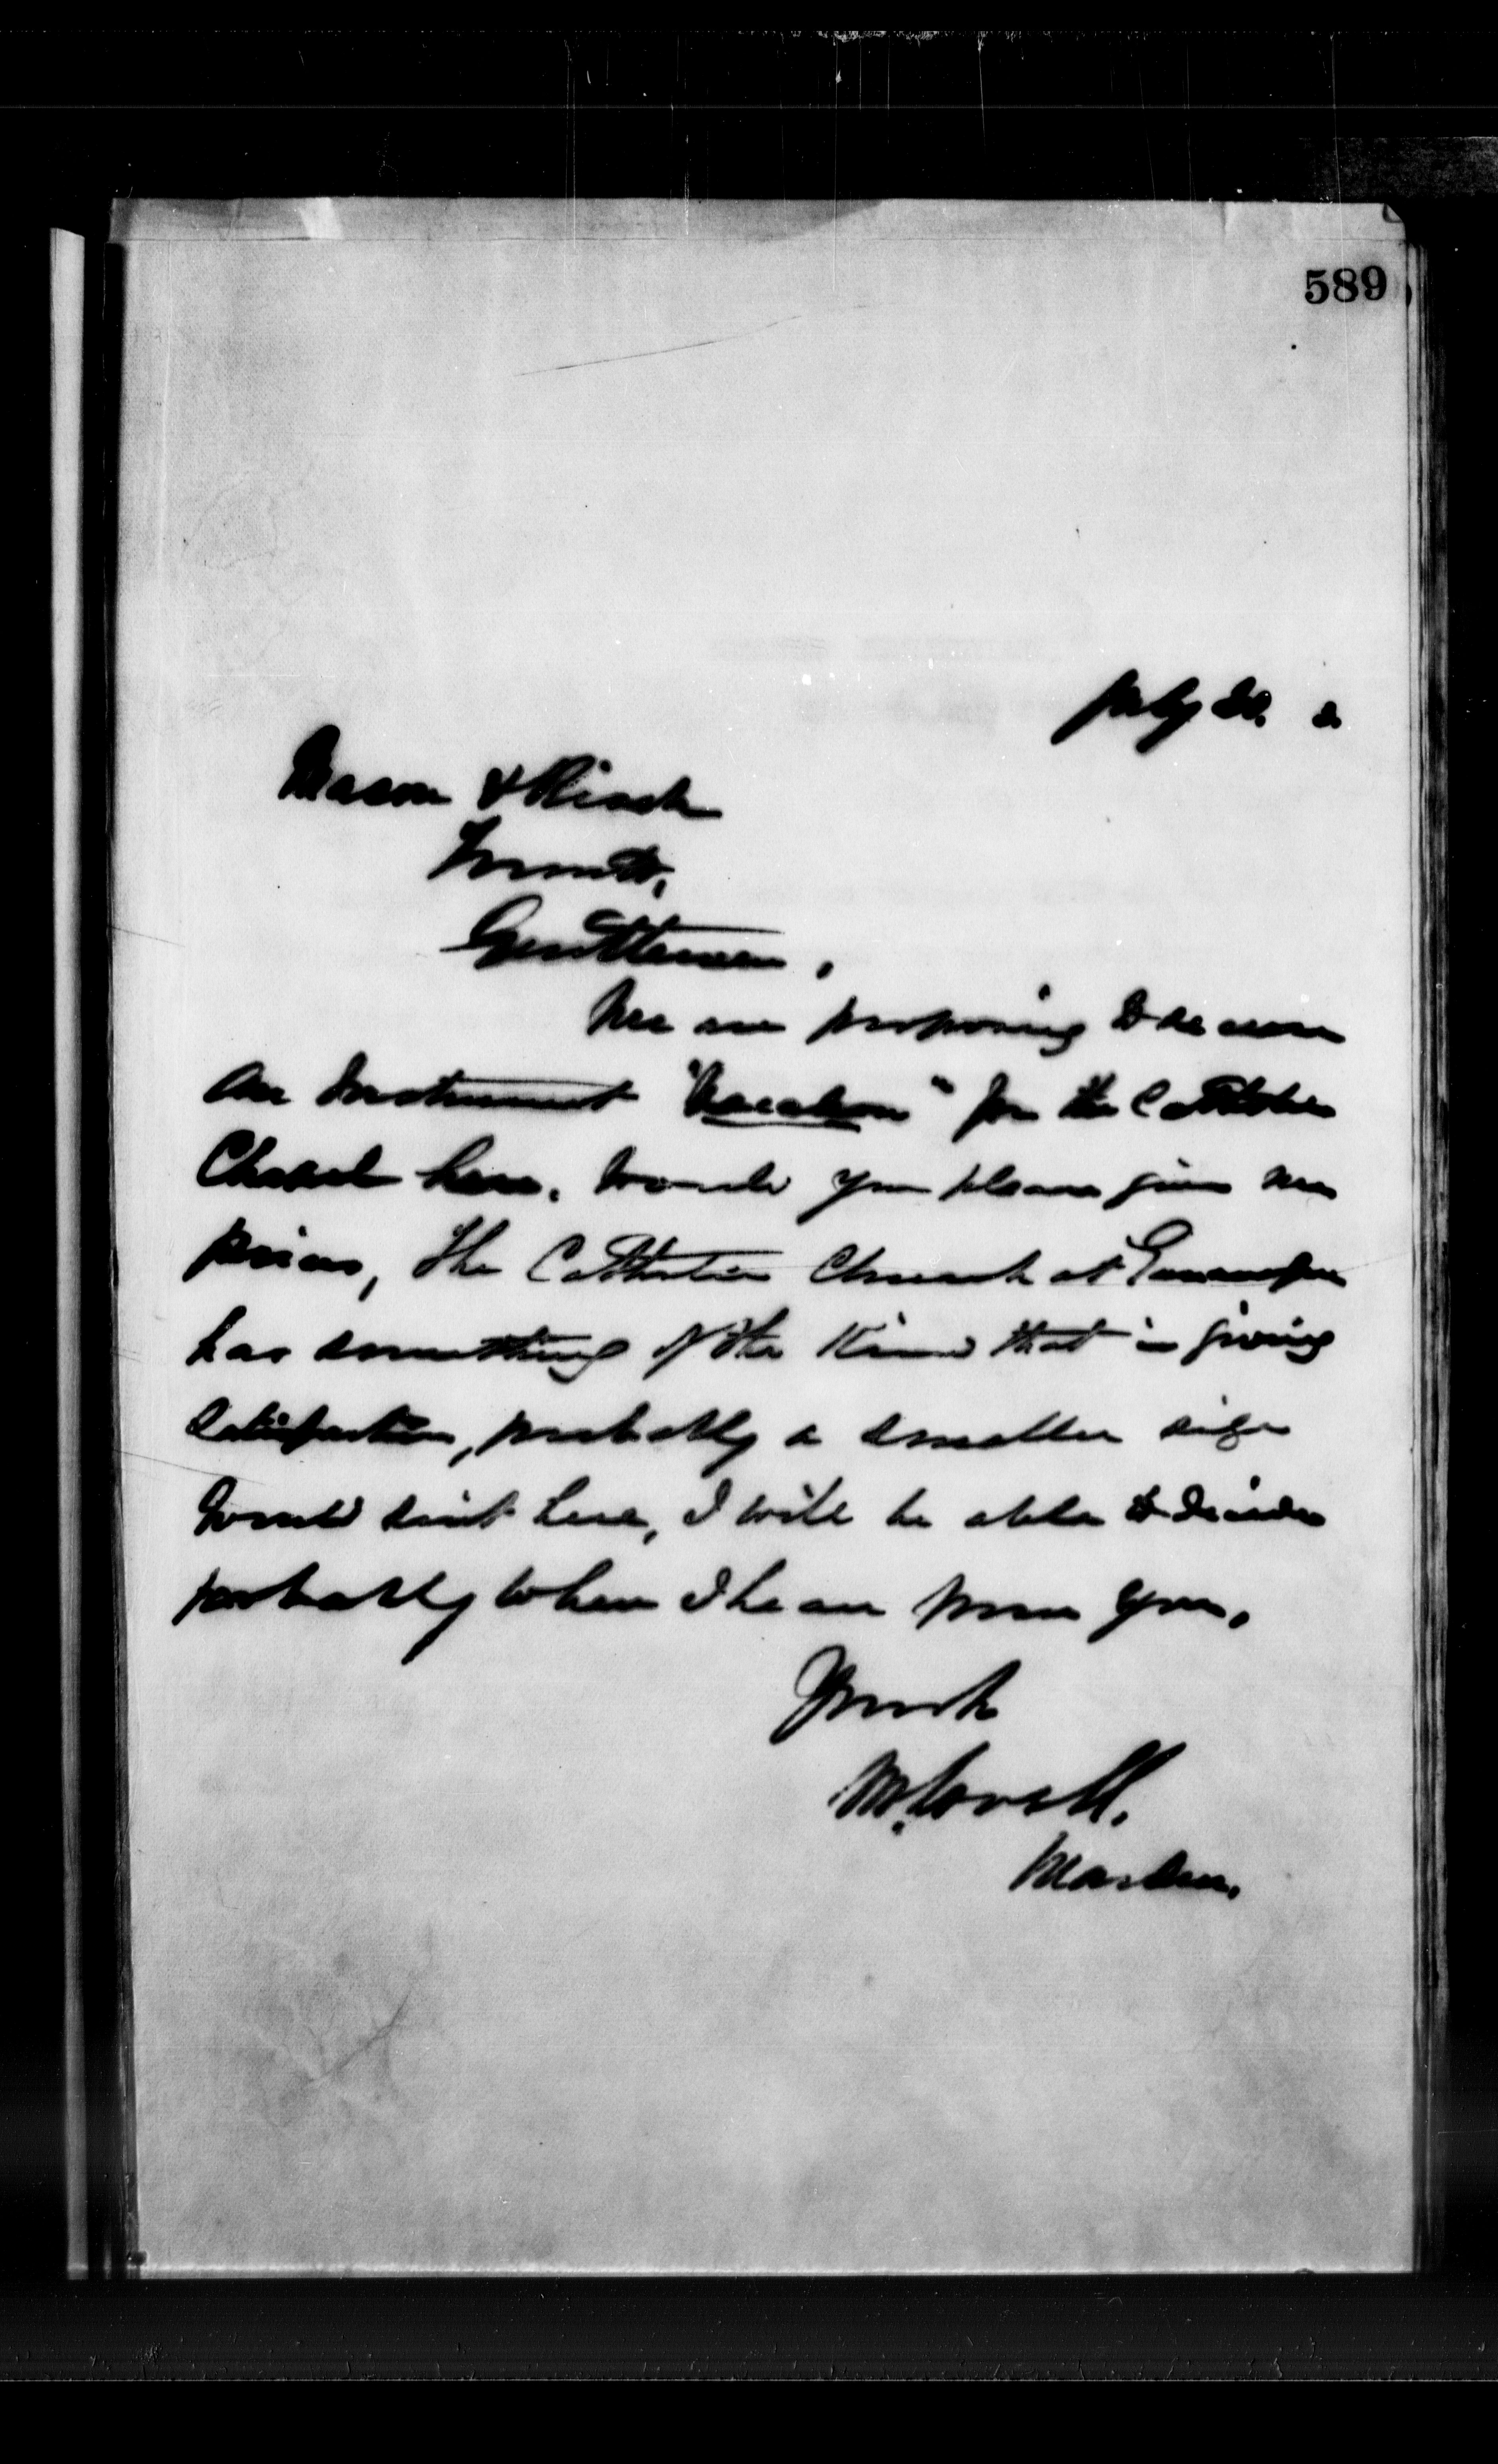 589
July 20. 2
Mason & Risch
Toronto,
Gentlemen,
We are proposing to secure
an Instrument "Vocalion" for the Catholic
Chapel here. Would you please give me
prices, The Catholic Church at Gananoque
has something of the kind that is giving
satisfaction, probably a smaller size
would suit here, I will be able to decide
probably when I hear from you,
Yours
M. Lavell.
Warden.